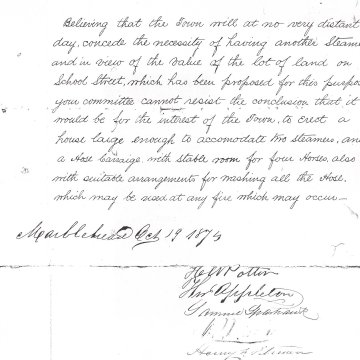 Believing that the Town will at no very distant
day, concede the necessity of having another Steamer
and in view of the value of the lot of land on
School Street, which has been proposed for this purpose
your committee cannot resist the conclusion that it
would be for the interest of the Town, to erect a
house large enough to accomodate two steamers, and
a Hose Carriage with stable room for four Horses, also
with suitable arrangements for washing all the Hose,
which may be used at any fire which may occur—
Marblehead Oct 19 1874
Thos Appleton